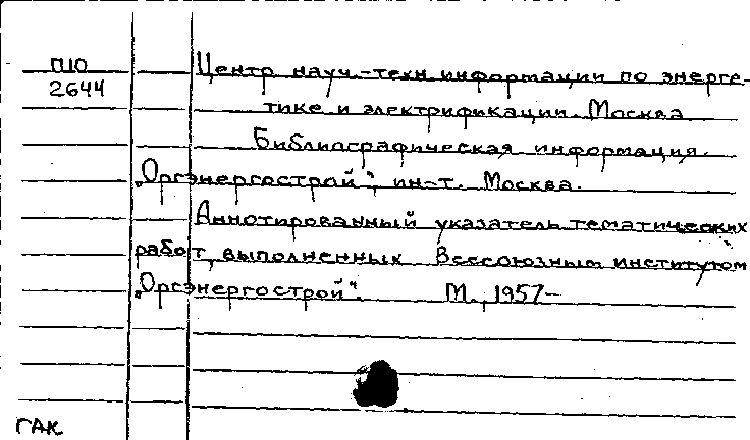 П10
2644
Центр науч.-техн. информации по энерге-
тике и электрификации. Москва
Библиографическая информация.
„Оргэнергострой“, ин-т. Москва.
Аннотированный указатель тематических
работ, выполненных Всесоюзным институтом
„Оргэнергострой“. М., 1957-
ГАК